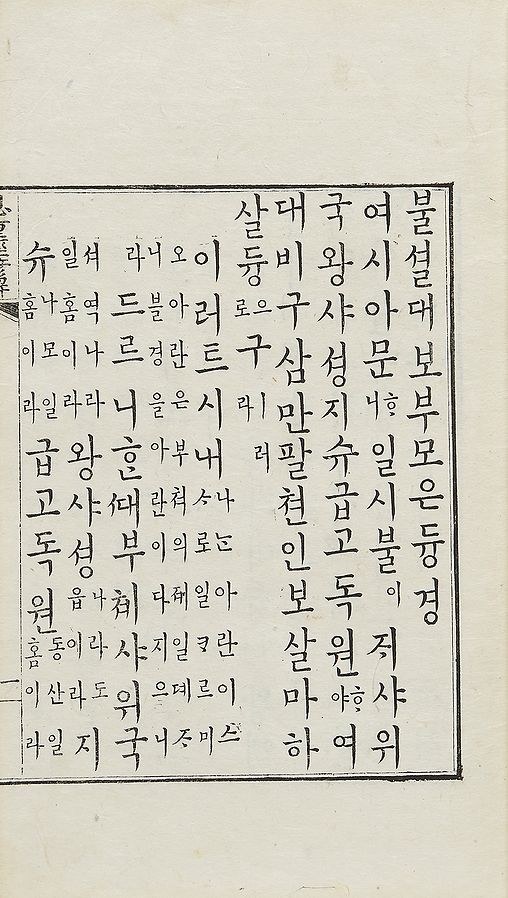 불셜대보부모은듕경
여시아문ᄒᆞ니일시불이ᄌᆡ샤위
국왕샤셩지슈급고독원ᄒᆞ야여
대비구삼만팔쳔인보살마하
살듕으로구ㅣ러라
이러트시내나ᄂᆞᆫ아란이스ᄉᆞ로일ᄏᆞ르미
오아란은부쳐의뎨일뎨ᄌᆞ니불경을아란이다지으니
라드르니ᄒᆞᆫᄯᅢ부쳬샤위국
셔역나라일홈이라왕샤셩나라도읍이라지
슈나모일홈이라급고독원동산일홈이라